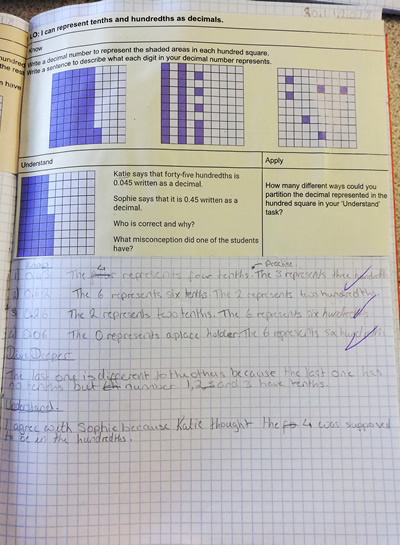 LO: I can represent tenths and hundredths as decimals.
Know
Write a decimal number to represent the shaded areas in each hundred square.
Write a sentence to describe what each digit in your decimal number represents.
Understand
Katie says that forty-five hundredths is
0.045 written as a decimal.
Sophie says that it is 0.45 written as a
decimal.
Who is correct and why?
What misconception did one of the students
have?
Apply
How many different ways could you
partition the decimal represented in the
hundred square in your 'Understand'
task?
The 4 represents four tenths. The 3 represents three
The 6 represents six tenths. The 2 represents two hundredths.
The 2 represents two tenths. The 6 represents six hundredths.
0.06 The 0 represents a place holder. The 6 represents six
Deeper
The last one is different to the others because the last one has
no tenths but number 1, 2, and 3 have tenths.
Understand.
I agree with Sophie because Katie thought the 4 was supposed
to be in the hundredths.